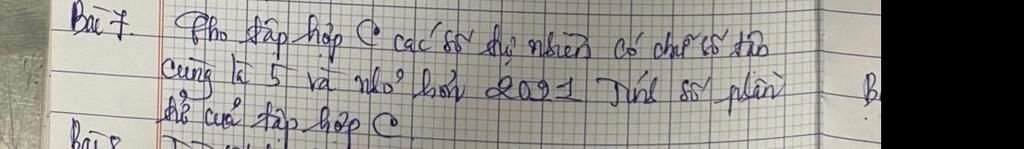 Bài 7. Cho tập hợp C các số tự nhiên có chữ số tận
cùng là 5 và nhỏ hơn 2021 Tính số phần B
tử của tập hợp C
Bài 8